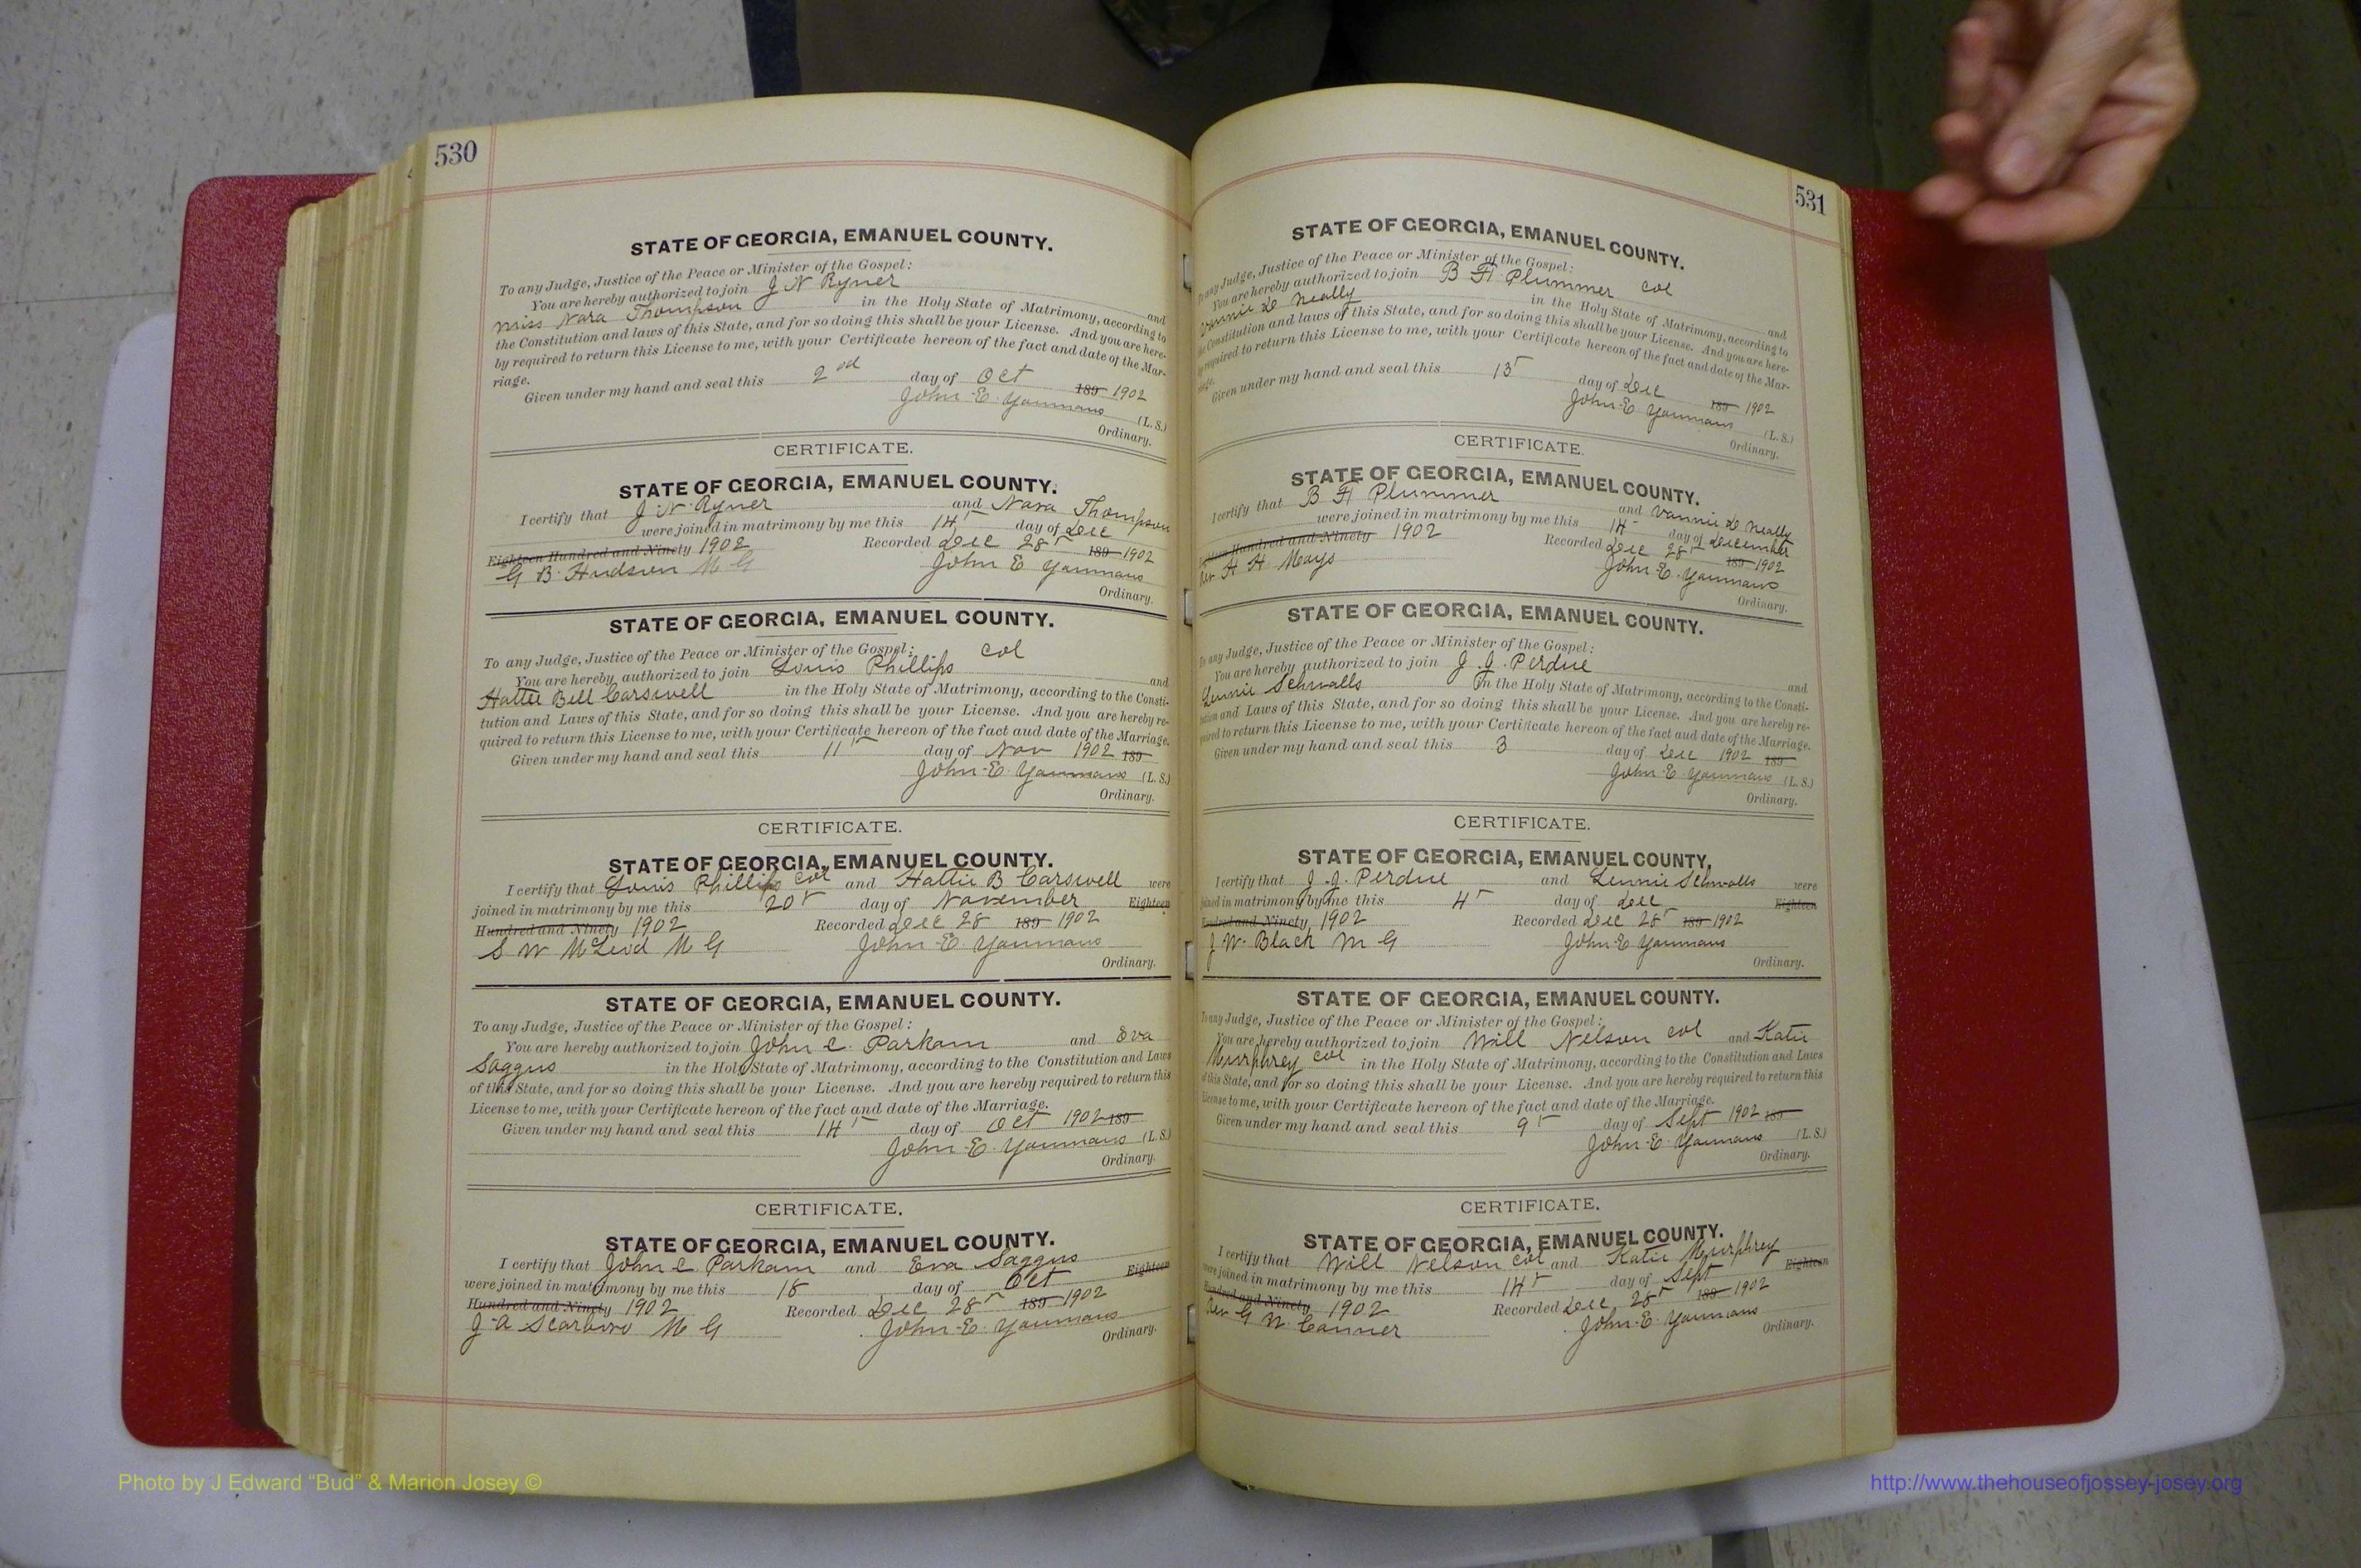 530
STATE OF GEORGIA, EMANUEL COUNTY.
To any Judge, Justice of the Peace or Minister of the Gospel:
You are hereby authorized to join J N Ryner and
Miss Nara Thompson in the Holy State of Matrimony, according to
the Constitution and laws of this State, and for so doing this shall be your License. And you are here-
by required to return this License to me, with your Certificate hereon of the fact and date of the Mar-
riage.
Given under my hand and seal this 2nd day of Oct 189 1902
John E. Youmans (L. S.)
Ordinary.
CERTIFICATE.
STATE OF GEORGIA, EMANUEL COUNTY.
I certify that J. N. Ryner and Nara Thompson
were joined in matrimony by me this 14 day of Dec
Eighteen Hundred and Ninety 1902 Recorded Dec 28 189 1902
G B. Hudson M G John E Youmans
Ordinary.
STATE OF GEORGIA, EMANUEL COUNTY.
To any Judge, Justice of the Peace or Minister of the Gospel: Col
You are hereby authorized to join Louis Phillips and
Hattie Bell Carswell in the Holy State of Matrimony, according to the Consti-
tution and Laws of this State, and for so doing this shall be your License. And you are hereby re-
quired to return this License to me, with your Certificate hereon of the fact aud date of the Marriage.
Given under my hand and seal this 11 day of Nov 1902 189
John E. Youmans (L. S.)
Ordinary.
CERTIFICATE.
STATE OF GEORGIA, EMANUEL COUNTY.
I certify that Louis Phillips Col and Hattie B Carswell were
joined in matrimony by me this 20 day of November Eighteen
Hundred and Ninety 1902 Recorded Dec 28 189 1902
S W McLeod M G John E. Youmans
Ordinary.
STATE OF GEORGIA, EMANUEL COUNTY.
To any Judge, Justice of the Peace or Minister of the Gospel:
You are hereby authorized to join John C. Parkam and Eva
Saggus in the Holy State of Matrimony, according to the Constitution and Laws
of this State, and for so doing this shall be your License. And you are hereby required to return this
License to me, with your Certificate hereon of the fact and date of the Marriage.
Given under my hand and seal this 14 day of Oct 1902 189
John E. Youmans (L. S.)
Ordinary.
CERTIFICATE.
STATE OF GEORGIA, EMANUEL COUNTY.
I certify that John C. Parkam and Eva Saggus
were joined in matrimony by me this 18 day of Oct Eighteen
Hundred and Ninety 1902 Recorded Dec 28 189 1902
J. A Scarboro M G John E. Youmans
Ordinary.
531
STATE OF GEORGIA, EMANUEL COUNTY.
To any Judge, Justice of the Peace or Minister of the Gospel:
You are hereby authorized to join B H Plummer Col and
Vannie L Neally in the Holy State of Matrimony, according to
the Constitution and laws of this State, and for so doing this shall be your License. And you are here-
by required to return this License to me, with your Certificate hereon of the fact and date of the Mar-
riage.
Given under my hand and seal this 13 day of Dec 189 1902
John E. Youmans (L. S.)
Ordinary.
CERTIFICATE.
STATE OF GEORGIA, EMANUEL COUNTY.
I certify that B H Plummer and Vannie L Neally
were joined in matrimony by me this 14 day of December
Eighteen Hundred and Ninety 1902 Recorded Dec 28 189 1902
Rev H H Mays John E. Youmans
Ordinary.
STATE OF GEORGIA, EMANUEL COUNTY.
To any Judge, Justice of the Peace or Minister of the Gospel:
You are hereby authorized to join J. J. Perdue and
Lennie Schwalls in the Holy State of Matrimony, according to the Consti-
tution and Laws of this State, and for so doing this shall be your License. And you are hereby re-
quired to return this License to me, with your Certificate hereon of the fact aud date of the Marriage.
Given under my hand and seal this 3 day of Dec 1902 189
John E Youmans (L. S.)
Ordinary.
CERTIFICATE.
STATE OF GEORGIA, EMANUEL COUNTY,
I certify that J. J. Perdue and Lennie Schwalls were
joined in matrimony by me this 4 day of Dec Eighteen
Hundred and Ninety, 1902 Recorded Dec 28 189 1902
J W. Black M G John E Youmans
Ordinary.
STATE OF GEORGIA, EMANUEL COUNTY.
To any Judge, Justice of the Peace or Minister of the Gospel:
You are hereby authorized to join Will Nelson Col and Katie
Murphrey Col in the Holy State of Matrimony, according to the Constitution and Laws
of this State, and for so doing this shall be your License. And you are hereby required to return this
License to me, with your Certificate hereon of the fact and date of the Marriage.
Given under my hand and seal this 9 day of Sept 1902 189
John E. Youmans (L. S.)
Ordinary.
CERTIFICATE.
STATE OF GEORGIA, EMANUEL COUNTY.
I certify that Will Nelson Col and Katie Murphrey
were joined in matrimony by me this 14 day of Sept Eighteen
Hundred and Ninety 1902 Recorded Dec 28 189 1902
Rev G W. Conner John E. Youmans
Ordinary.
Photo by J Edward “Bud” & Marion Josey ©
http://www.thehouseofjossey-josey.org